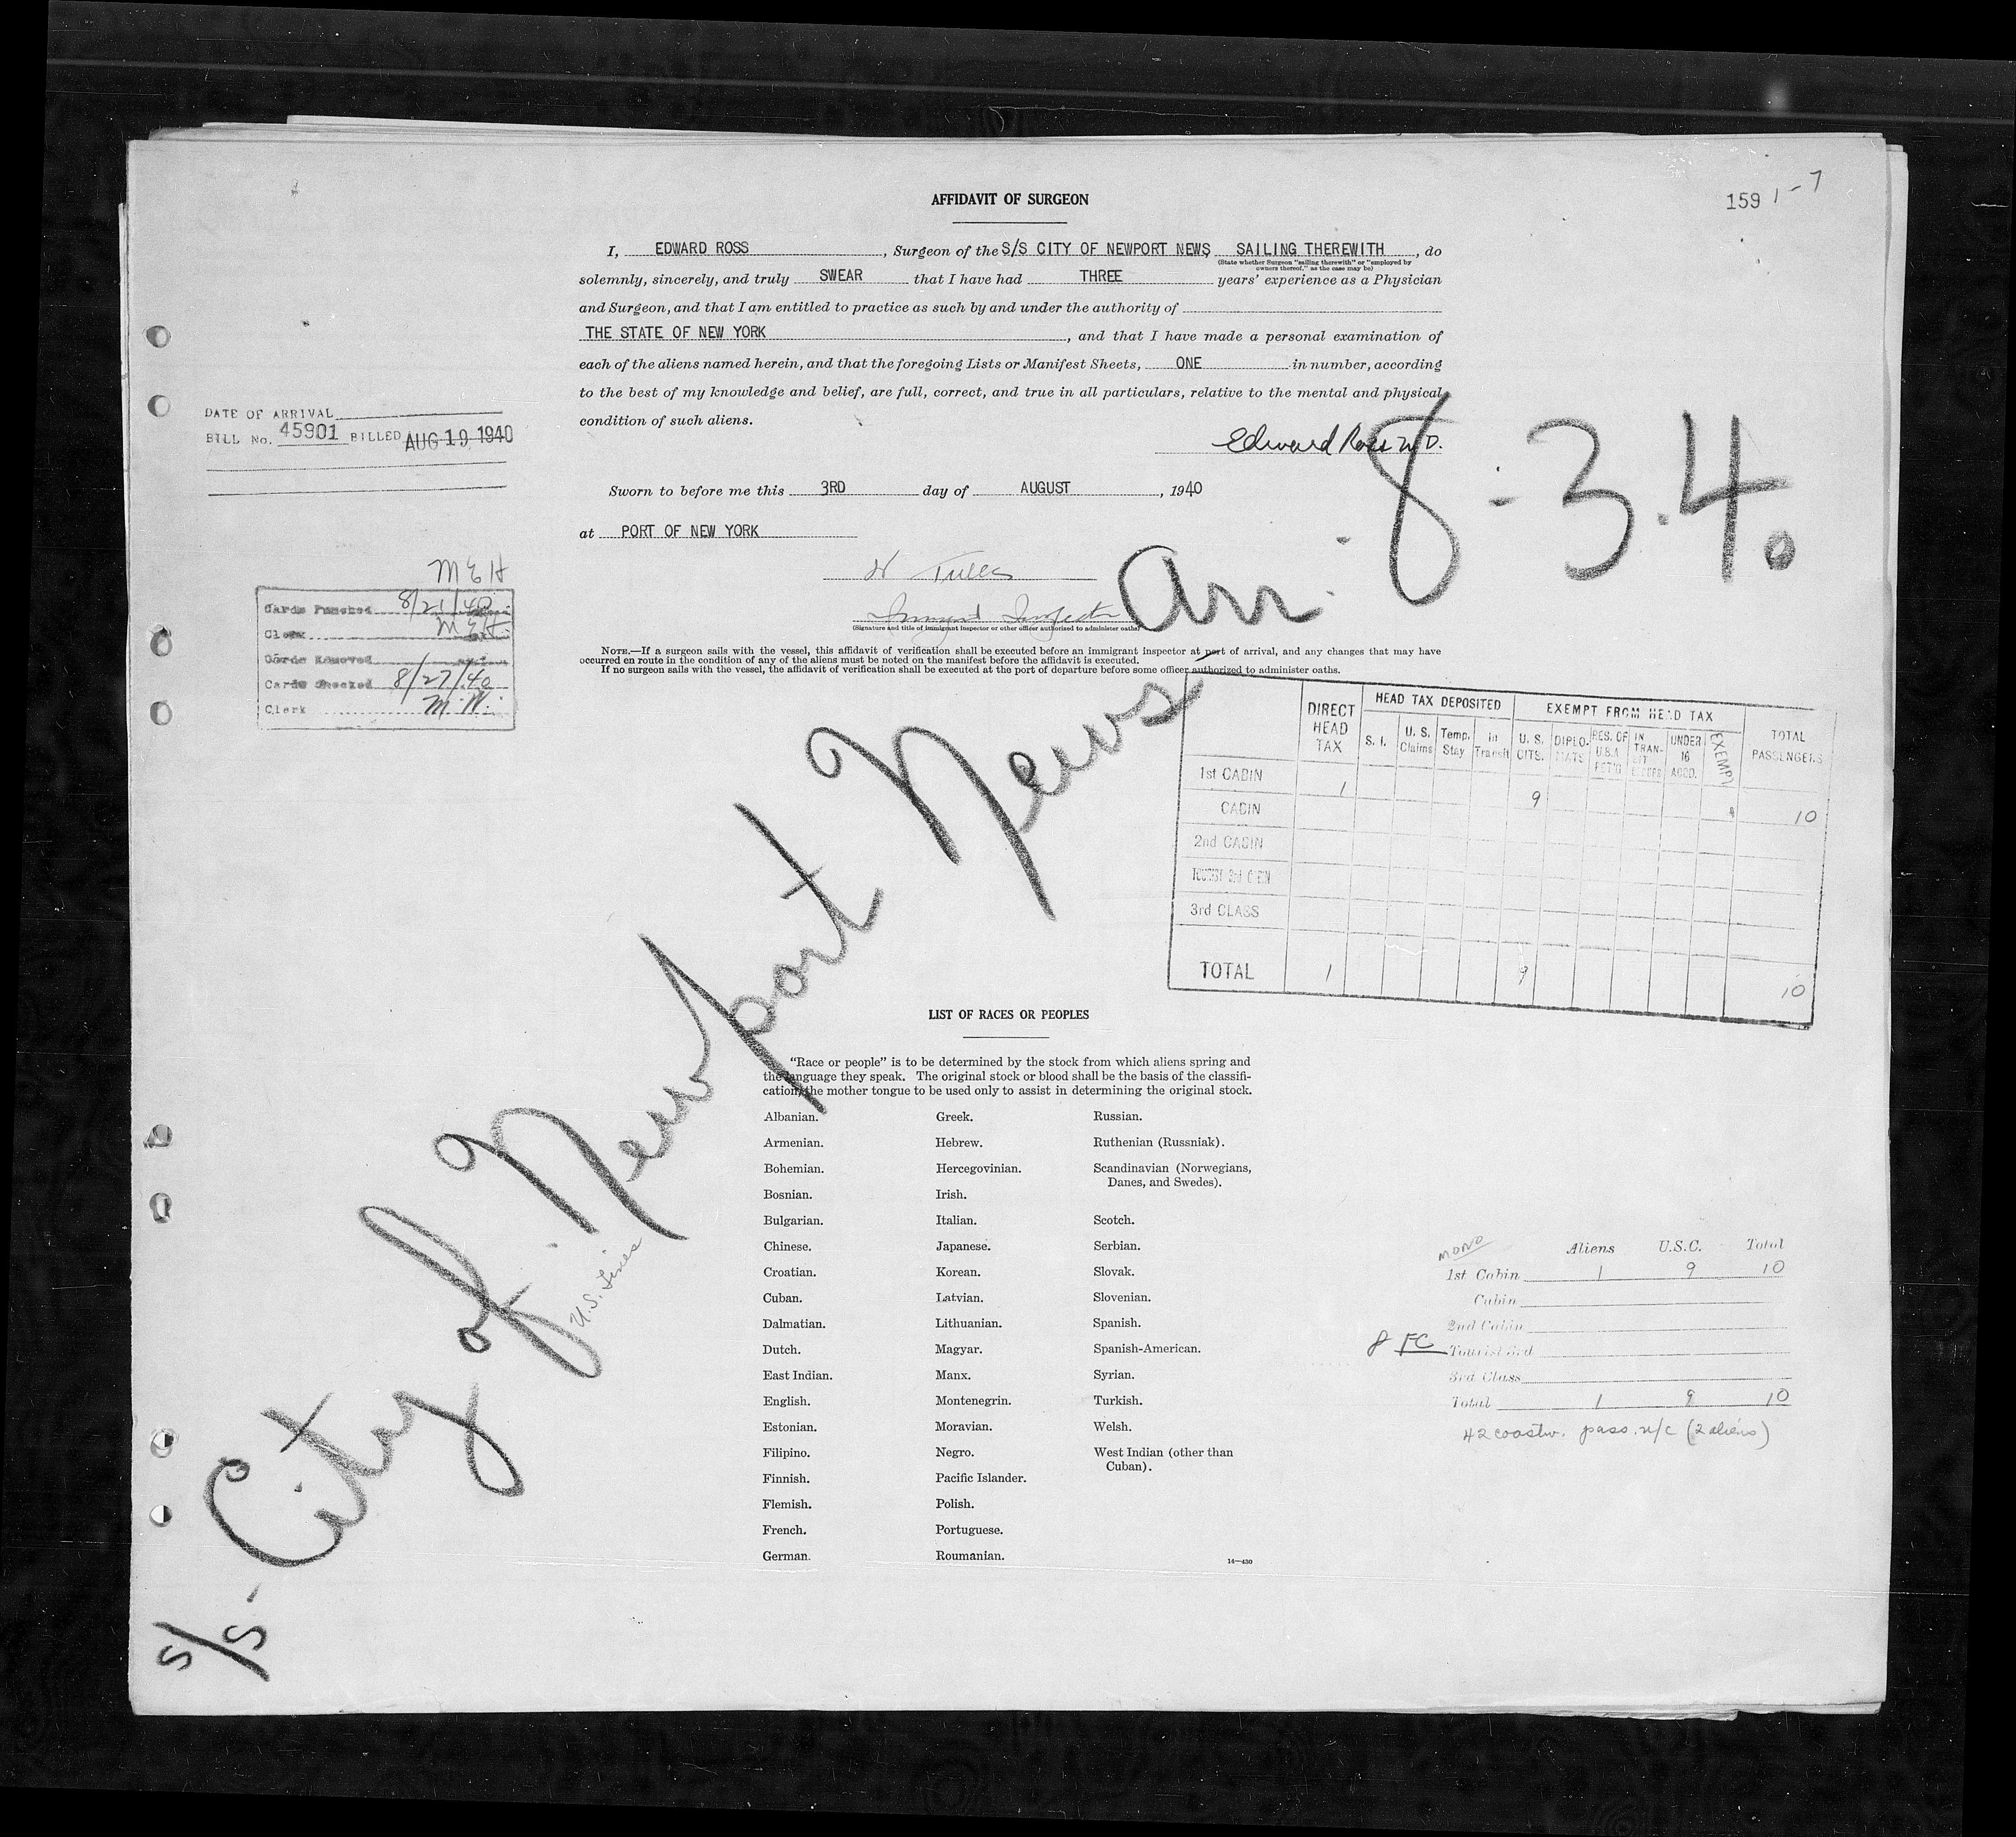 AFFIDAVIT OF SURGEON
159 1-7
I, EDWARD ROSS, Surgeon of the S/S CITY OF NEWPORT NEWS, SAILING THEREWITH, do
(State whether Surgeon "sailing therewith" or "employed by
owners thereof," as the case may be)
solemnly, sincerely, and truly SWEAR that I have had THREE years' experience as a Physician
and Surgeon, and that I am entitled to practice as such by and under the authority of
THE STATE OF NEW YORK, and that I have made a personal examination of
each of the aliens named herein, and that the foregoing Lists or Manifest Sheets, ONE in number, according
to the best of my knowledge and belief, are full, correct, and true in all particulars, relative to the mental and physical
condition of such aliens.
Edward Ross M.D.
DATE OF ARRIVAL
BILL No. 45901 BILLED AUG 19 1940
Sworn to before me this 3RD day of AUGUST, 1940
at PORT OF NEW YORK
Immgnt Inspector
(Signature and title of immigrant inspector or other officer authorized to administer oaths)
Arr. 8-3.40
MEH
Cards Punched 8/21/40
Clerk MEH
Cards Removed
Cards Checked 8/27/40
Clerk M.W.
NOTE.—If a surgeon sails with the vessel, this affidavit of verification shall be executed before an immigrant inspector at port of arrival, and any changes that may have
occurred en route in the condition of any of the aliens must be noted on the manifest before the affidavit is executed.
If no surgeon sails with the vessel, the affidavit of verification shall be executed at the port of departure before some officer authorized to administer oaths.
S/S - City of Newport News
U.S. Lines
DIRECT HEAD TAX
HEAD TAX DEPOSITED
EXEMPT FROM HEAD TAX
TOTAL PASSENGERS
S. I.
U. S. Claims
Temp. Stay
In Transit
U. S. CITS.
DIPLOMATS
RES. OF U.S.A. RET'G
IN TRANSIT
UNDER 16 ACCD.
EXEMPT
1st CABIN 1 9 10
CABIN
2nd CABIN
TOURIST 3rd CABIN
3rd CLASS
TOTAL 1 9 10
LIST OF RACES OR PEOPLES
"Race or people" is to be determined by the stock from which aliens spring and
the language they speak. The original stock or blood shall be the basis of the classifi-
cation, the mother tongue to be used only to assist in determining the original stock.
Albanian.
Armenian.
Bohemian.
Bosnian.
Bulgarian.
Chinese.
Croatian.
Cuban.
Dalmatian.
Dutch.
East Indian.
English.
Estonian.
Filipino.
Finnish.
Flemish.
French.
German.
Greek.
Hebrew.
Hercegovinian.
Irish.
Italian.
Japanese.
Korean.
Latvian.
Lithuanian.
Magyar.
Manx.
Montenegrin.
Moravian.
Negro.
Pacific Islander.
Polish.
Portuguese.
Roumanian.
Russian.
Ruthenian (Russniak).
Scandinavian (Norwegians,
Danes, and Swedes).
Scotch.
Serbian.
Slovak.
Slovenian.
Spanish.
Spanish-American.
Syrian.
Turkish.
Welsh.
West Indian (other than
Cuban).
14—430
MONO
Aliens U.S.C. Total
1st Cabin 1 9 10
Cabin
2nd Cabin
8 FC Tourist 3rd
3rd Class
Total 1 9 10
42 coastw. pass. n/c (2 aliens)